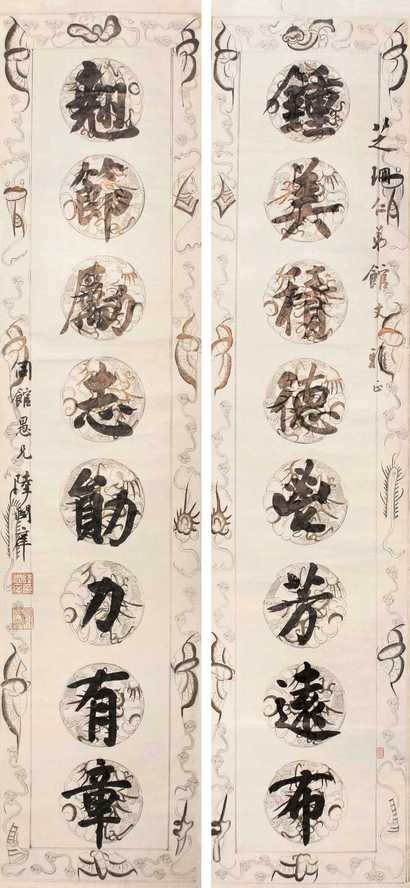 芝珊仁弟館丈雅正
鍾美積德芳遠布
翹節勵志勛力有章
同館愚兄陸潤庠